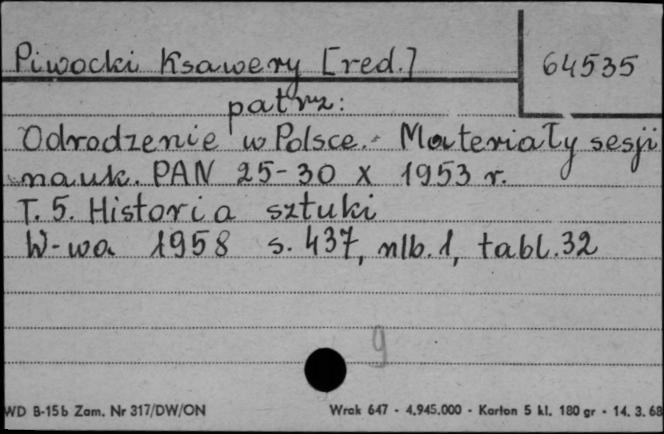 Piwocki Ksawery [red.]
64535
patrz:
Odrodzenie w Polsce. - Materiały sesji
nauk. PAN 25-30 X 1953 r.
T. 5. Historia sztuki
W-wa 1958 s. 437, nlb. 1, tabl. 32
9
WD B-15b Zam. Nr 317/DW/ON
Wrak 647 - 4.945.000 - Karton 5 kl. 180 gr - 14. 3. 68